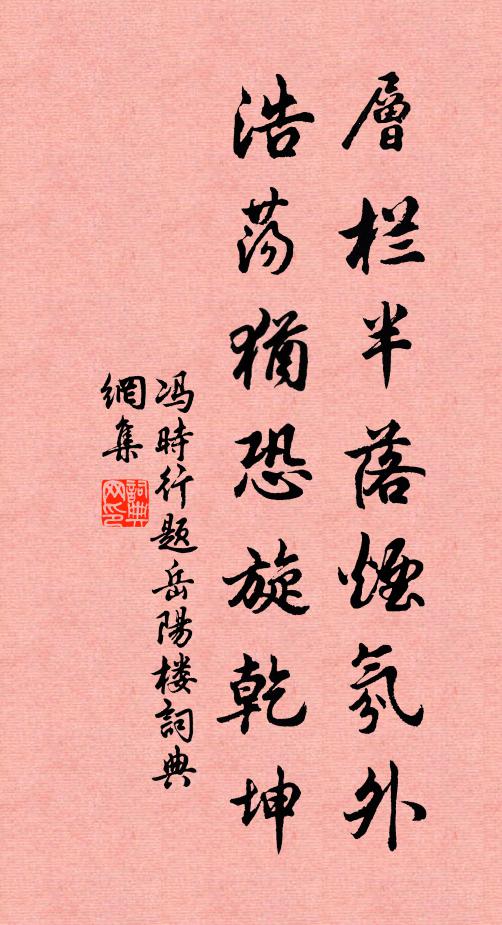 層栏半落煙氛外
浩荡猶恐旋乾坤
冯時行题岳陽楼詞典
網集
詞典網印